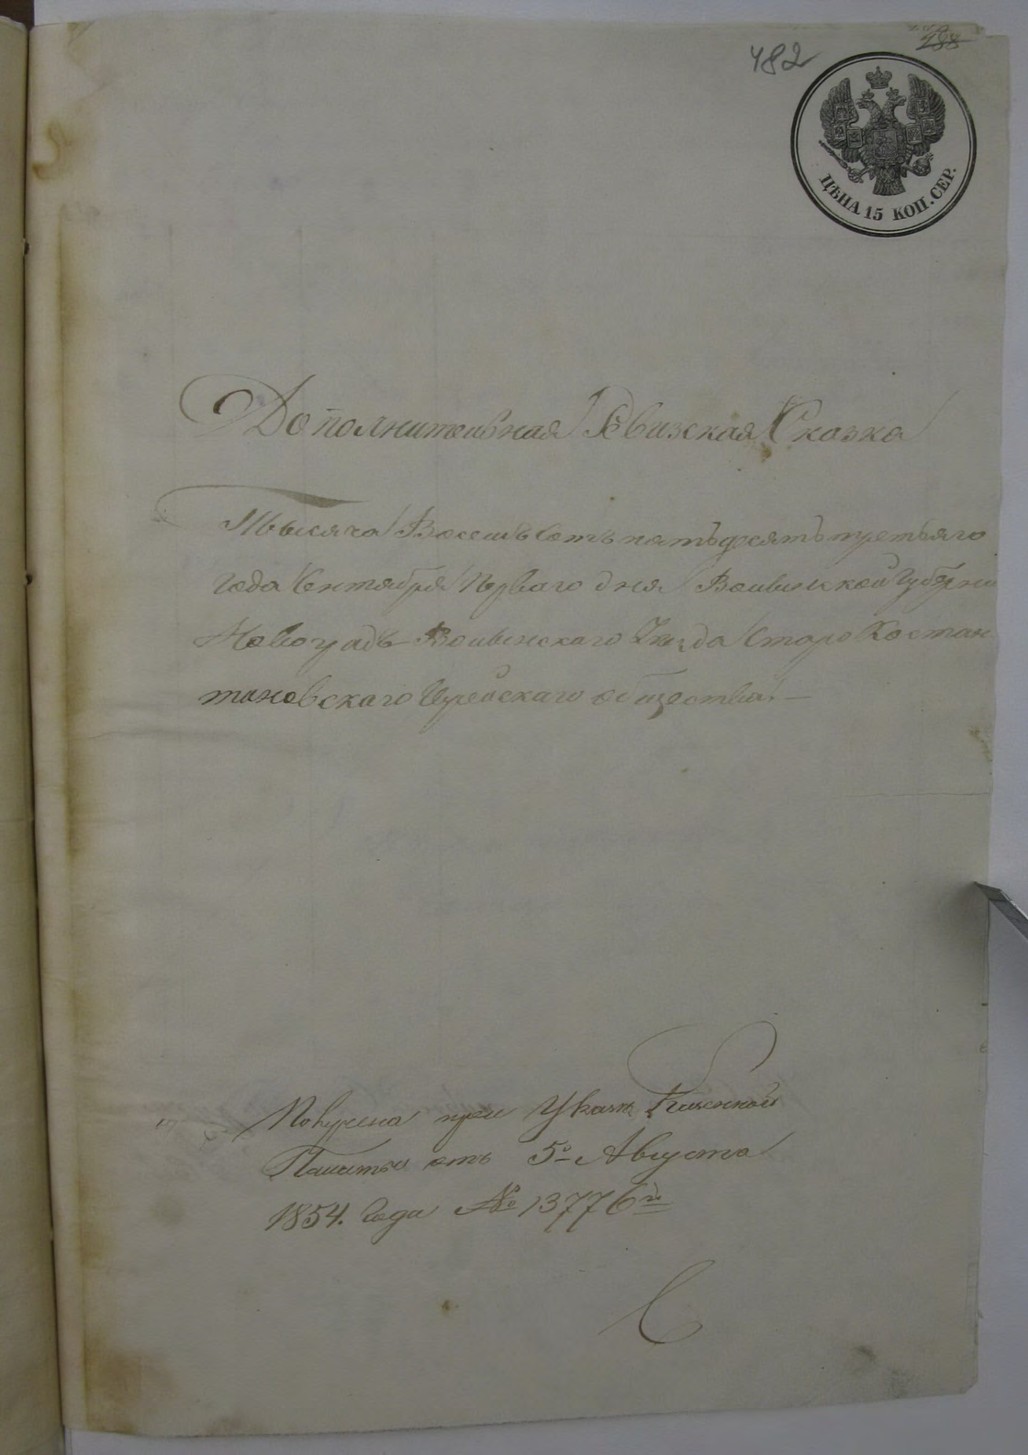 482
188
ЦѢНА 15 КОП. СЕР.
Дополнительная Ревизская Сказка
Тысяча Восемьсотъ пятьдесятъ третьяго
года Сентября Перваго дня Волынской Губерніи
Новоградъ Волынскаго Уѣзда Старо Костан
тиновскаго Еврейскаго общества. —
при Указѣ Казенной
Палаты отъ 5го Августа
1854. года № 13776й